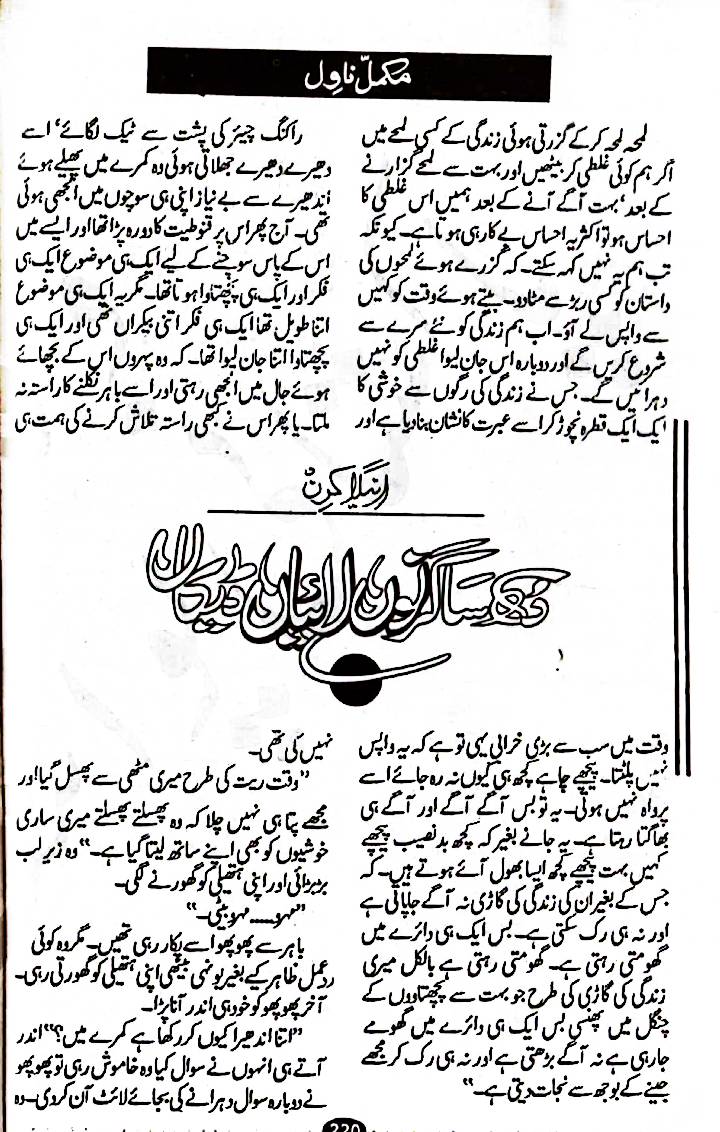 مکمل ناول
لمحہ لمحہ کر کے گزرتی ہوئی زندگی کے کسی لمحے میں
اگر ہم کوئی غلطی کر بیٹھیں اور بہت سے لمحے گزارنے
کے بعد' بہت آگے آنے کے بعد ہمیں اس غلطی کا
احساس ہو تو اکثر یہ احساس بے کار ہی ہوتا ہے۔ کیونکہ
تب ہم یہ نہیں کہہ سکتے۔ کہ گزرے ہوئے لمحوں کی
داستان کو کسی ربڑ سے مٹا دو۔ بیتے ہوئے وقت کو کہیں
سے واپس لے آؤ۔ اب ہم زندگی کو نئے سرے سے
شروع کریں گے اور دوبارہ اس جان لیوا غلطی کو نہیں
دہرائیں گے۔ جس نے زندگی کی رگوں سے خوشی کا
ایک ایک قطرہ نچوڑ کر اسے عبرت کا نشان بنا دیا ہے اور
راکنگ چیئر کی پشت سے ٹیک لگائے' اسے
دھیرے دھیرے جھلاتی ہوئی وہ کمرے میں پھیلے ہوئے
اندھیرے سے بے نیاز اپنی ہی سوچوں میں الجھی ہوئی
تھی۔ آج پھر اس پر قنوطیت کا دورہ پڑا تھا اور ایسے میں
اس کے پاس سوچنے کے لیے ایک ہی موضوع ایک ہی
فکر اور ایک ہی پچھتاوا ہوتا تھا۔ مگر یہ ایک ہی موضوع
اتنا طویل تھا ایک ہی فکر اتنی بیکراں تھی اور ایک ہی
پچھتاوا اتنا جان لیوا تھا۔ کہ وہ پہروں اس کے بچھائے
ہوئے جال میں الجھی رہتی اور اسے باہر نکلنے کا راستہ نہ
ملتا۔ یا پھر اس نے کبھی راستہ تلاش کرنے کی ہمت ہی
انیلا کرن
دکھ ساگروں لائیاں ڈیکاں
وقت میں سب سے بڑی خرابی یہی تو ہے کہ یہ واپس
نہیں پلٹتا۔ پیچھے چاہے کچھ ہی کیوں نہ رہ جائے اسے
پرواہ نہیں ہوتی۔ یہ تو بس آگے آگے اور آگے ہی
بھاگتا رہتا ہے۔ یہ جانے بغیر کہ کچھ بدنصیب پیچھے
کہیں بہت پیچھے کچھ ایسا بھول آئے ہوتے ہیں۔ کہ
جس کے بغیر ان کی زندگی کی گاڑی نہ آگے جاپاتی ہے
اور نہ ہی رک سکتی ہے۔ بس ایک ہی دائرے میں
گھومتی رہتی ہے۔ گھومتی رہتی ہے بالکل میری
زندگی کی گاڑی کی طرح جو بہت سے پچھتاووں کے
جنگل میں پھنسی بس ایک ہی دائرے میں گھومے
جا رہی ہے نہ آگے بڑھتی ہے اور نہ ہی رک کر مجھے
جینے کے بوجھ سے نجات دیتی ہے۔"
نہیں کی تھی۔
"وقت ریت کی طرح میری مٹھی سے پھسل گیا! اور
مجھے پتا ہی نہیں چلا کہ وہ پھسلتے پھسلتے میری ساری
خوشیوں کو بھی اپنے ساتھ لیتا گیا ہے۔" وہ زیر لب
بڑبڑائی اور اپنی ہتھیلی کو گھورنے لگی۔
"مہو۔۔۔۔ مہو بیٹی۔"
باہر سے پھوپھو اسے پکار رہی تھیں۔ مگر وہ کوئی
ردعمل ظاہر کیے بغیر یونہی بیٹھی اپنی ہتھیلی کو گھورتی رہی۔
آخر پھوپھو کو خود ہی اندر آنا پڑا۔
"اتنا اندھیرا کیوں کر رکھا ہے کمرے میں؟" اندر
آتے ہی انہوں نے سوال کیا وہ خاموش رہی تو پھوپھو
نے دوبارہ سوال دہرانے کی بجائے لائٹ آن کر دی۔ وہ
220